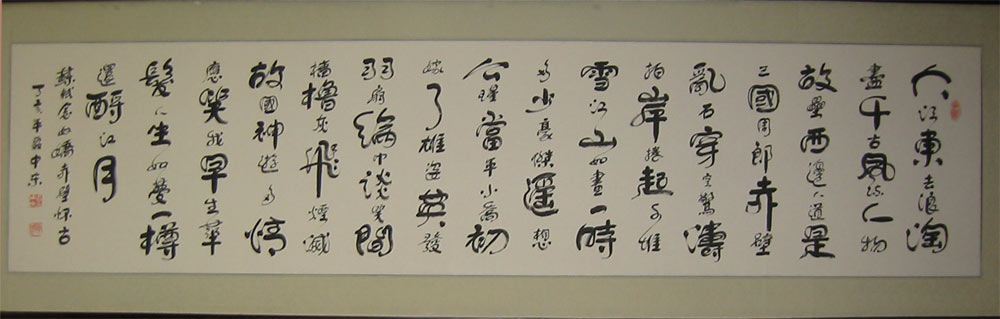 大江東去浪淘
盡千古風流人物
故壘西邊人道是
三國周郎赤壁
亂石穿空驚濤
拍岸捲起千堆
雪江山如畫一時
多少豪傑遥想
公瑾當年小喬初
嫁了雄姿英發
羽扇綸巾談笑間
檣櫓灰飛煙滅
故國神遊多情
應笑我早生華
髮人生如夢一樽
還酹江月
蘇軾念奴嬌赤壁懷古
丁亥年